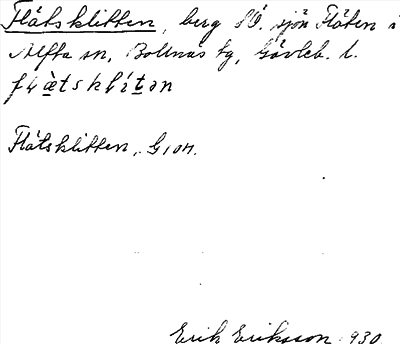 Flåtsklitten, berg SÖ. sjön Flåten i
Alfta sn, Bollnäs tg, Gävleb. l.

Flåtsklitten, G 104.
Erik Eriksson 1930.